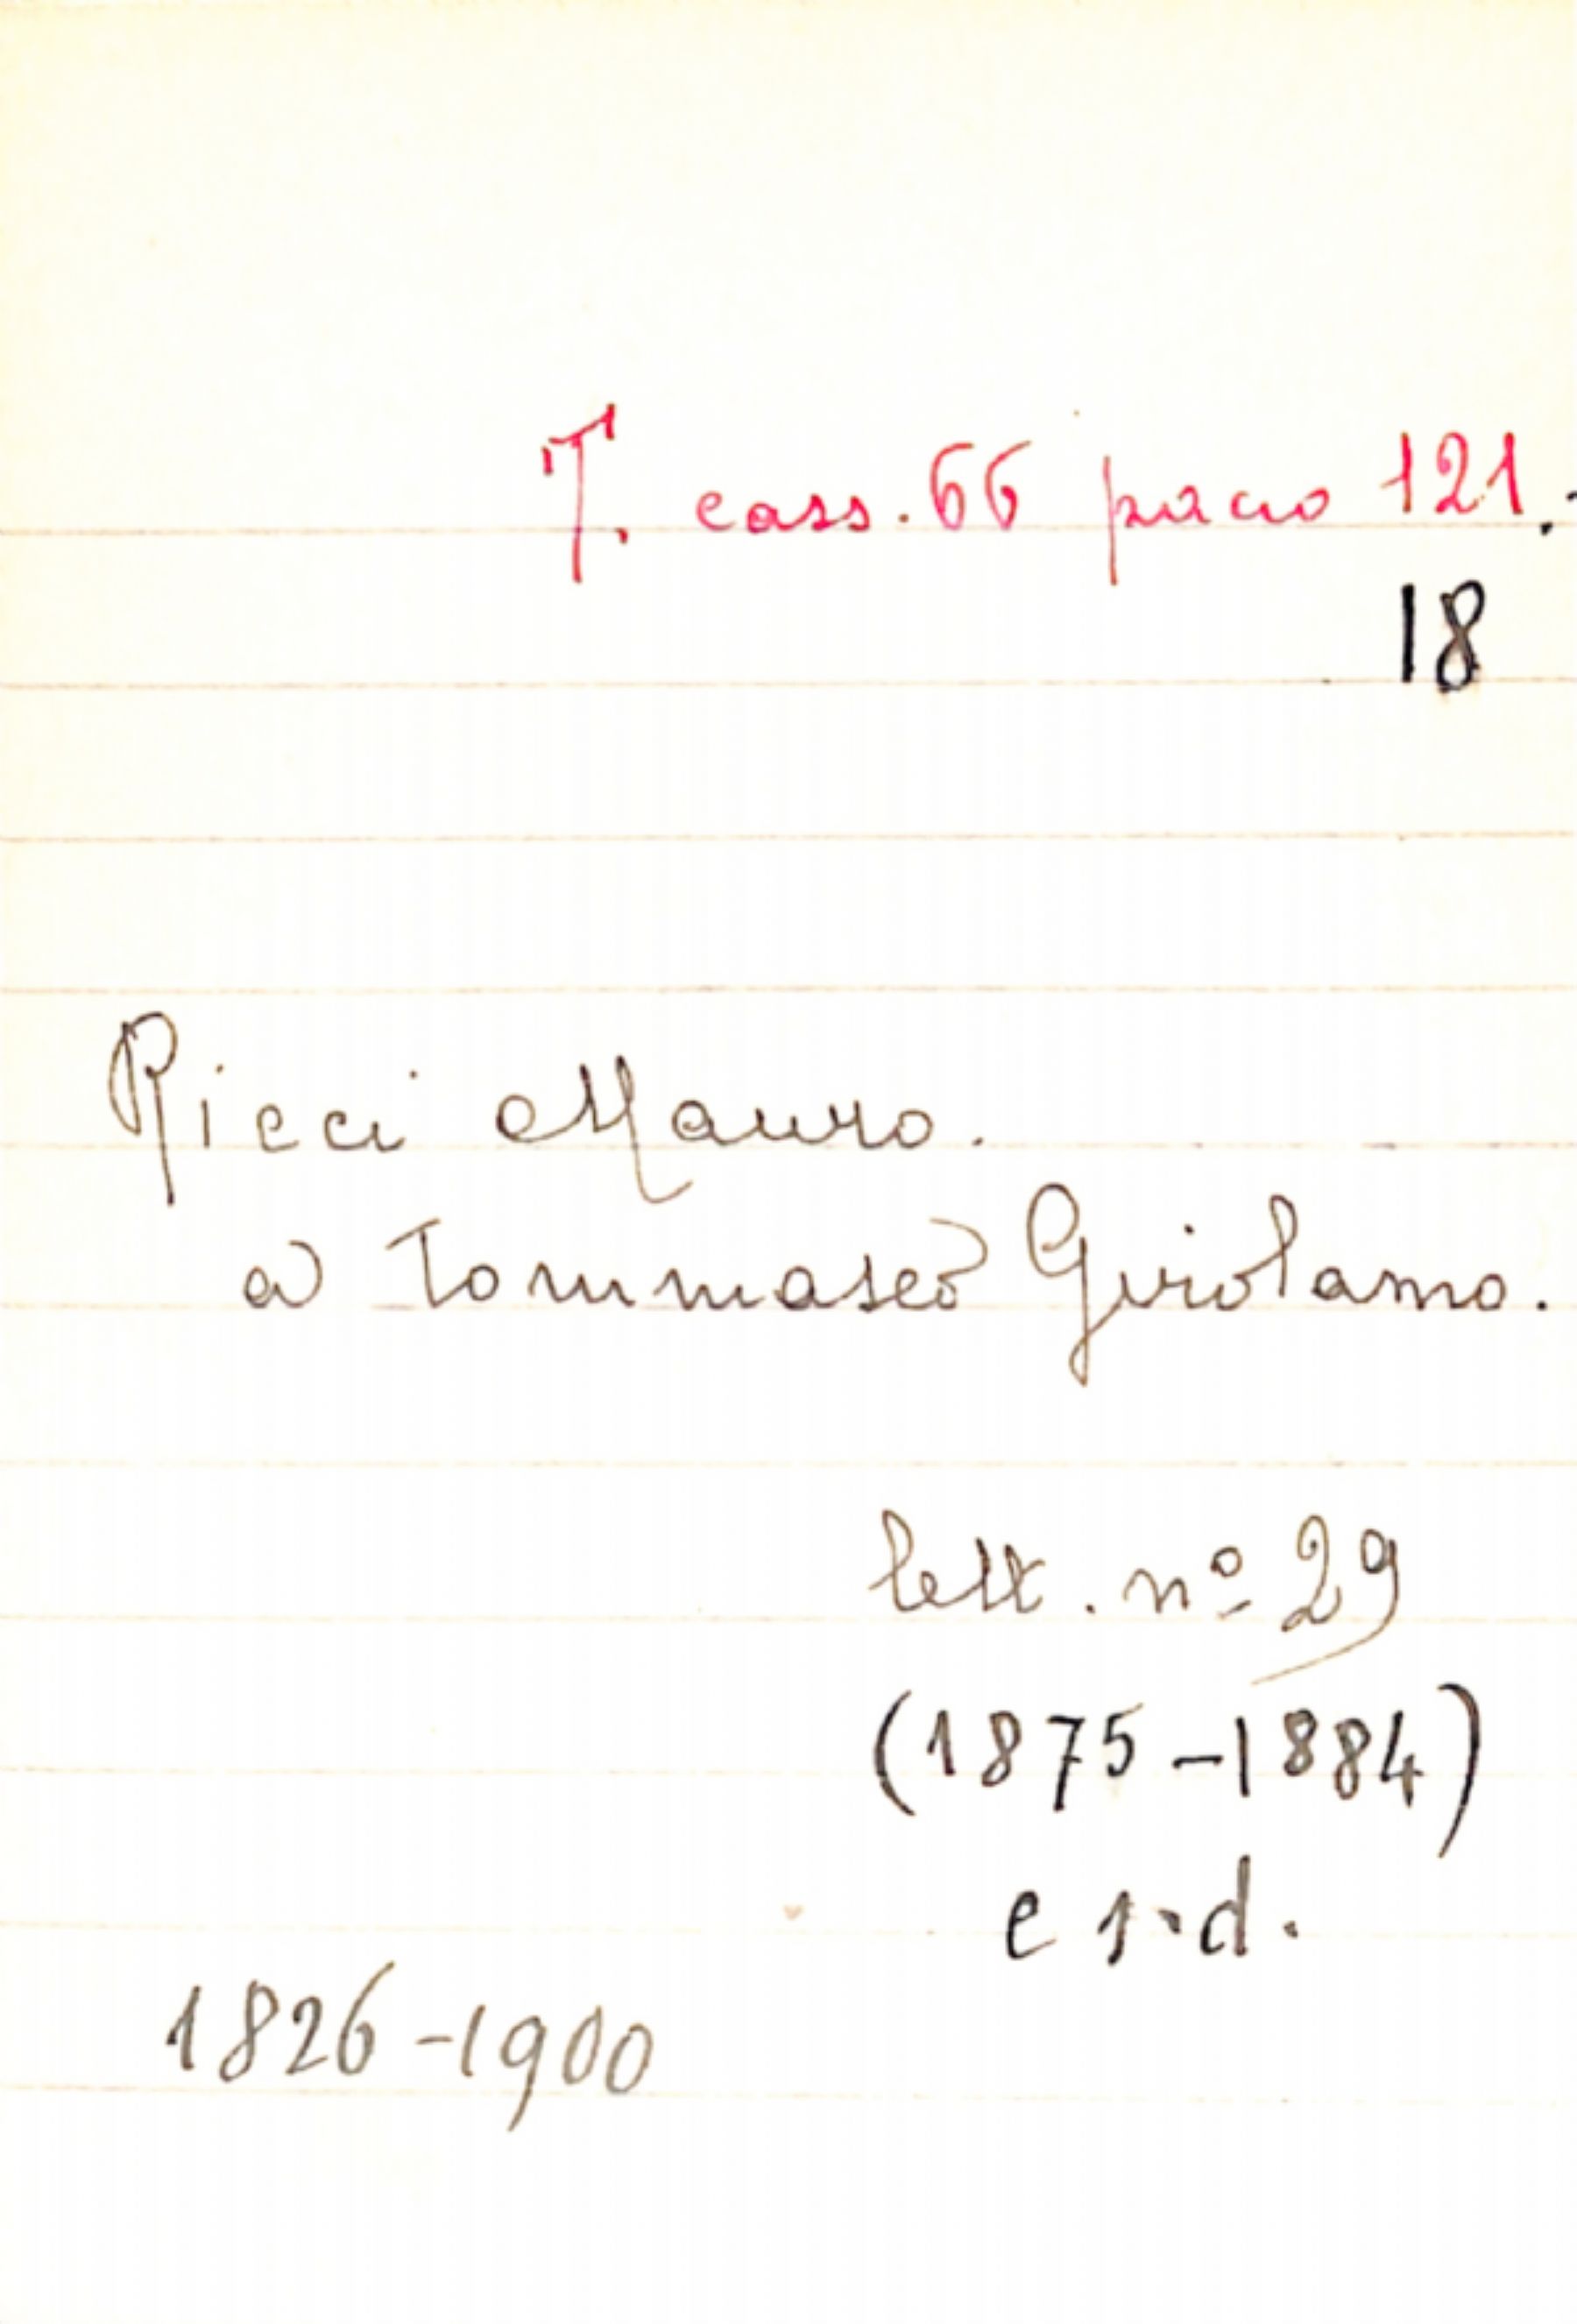 T. cass. 66 pacco 121.
18
Ricci Mauro.
a Tommaseo Girolamo.
lett. nº 29
(1875-1884)
e s.d.
1826-1900